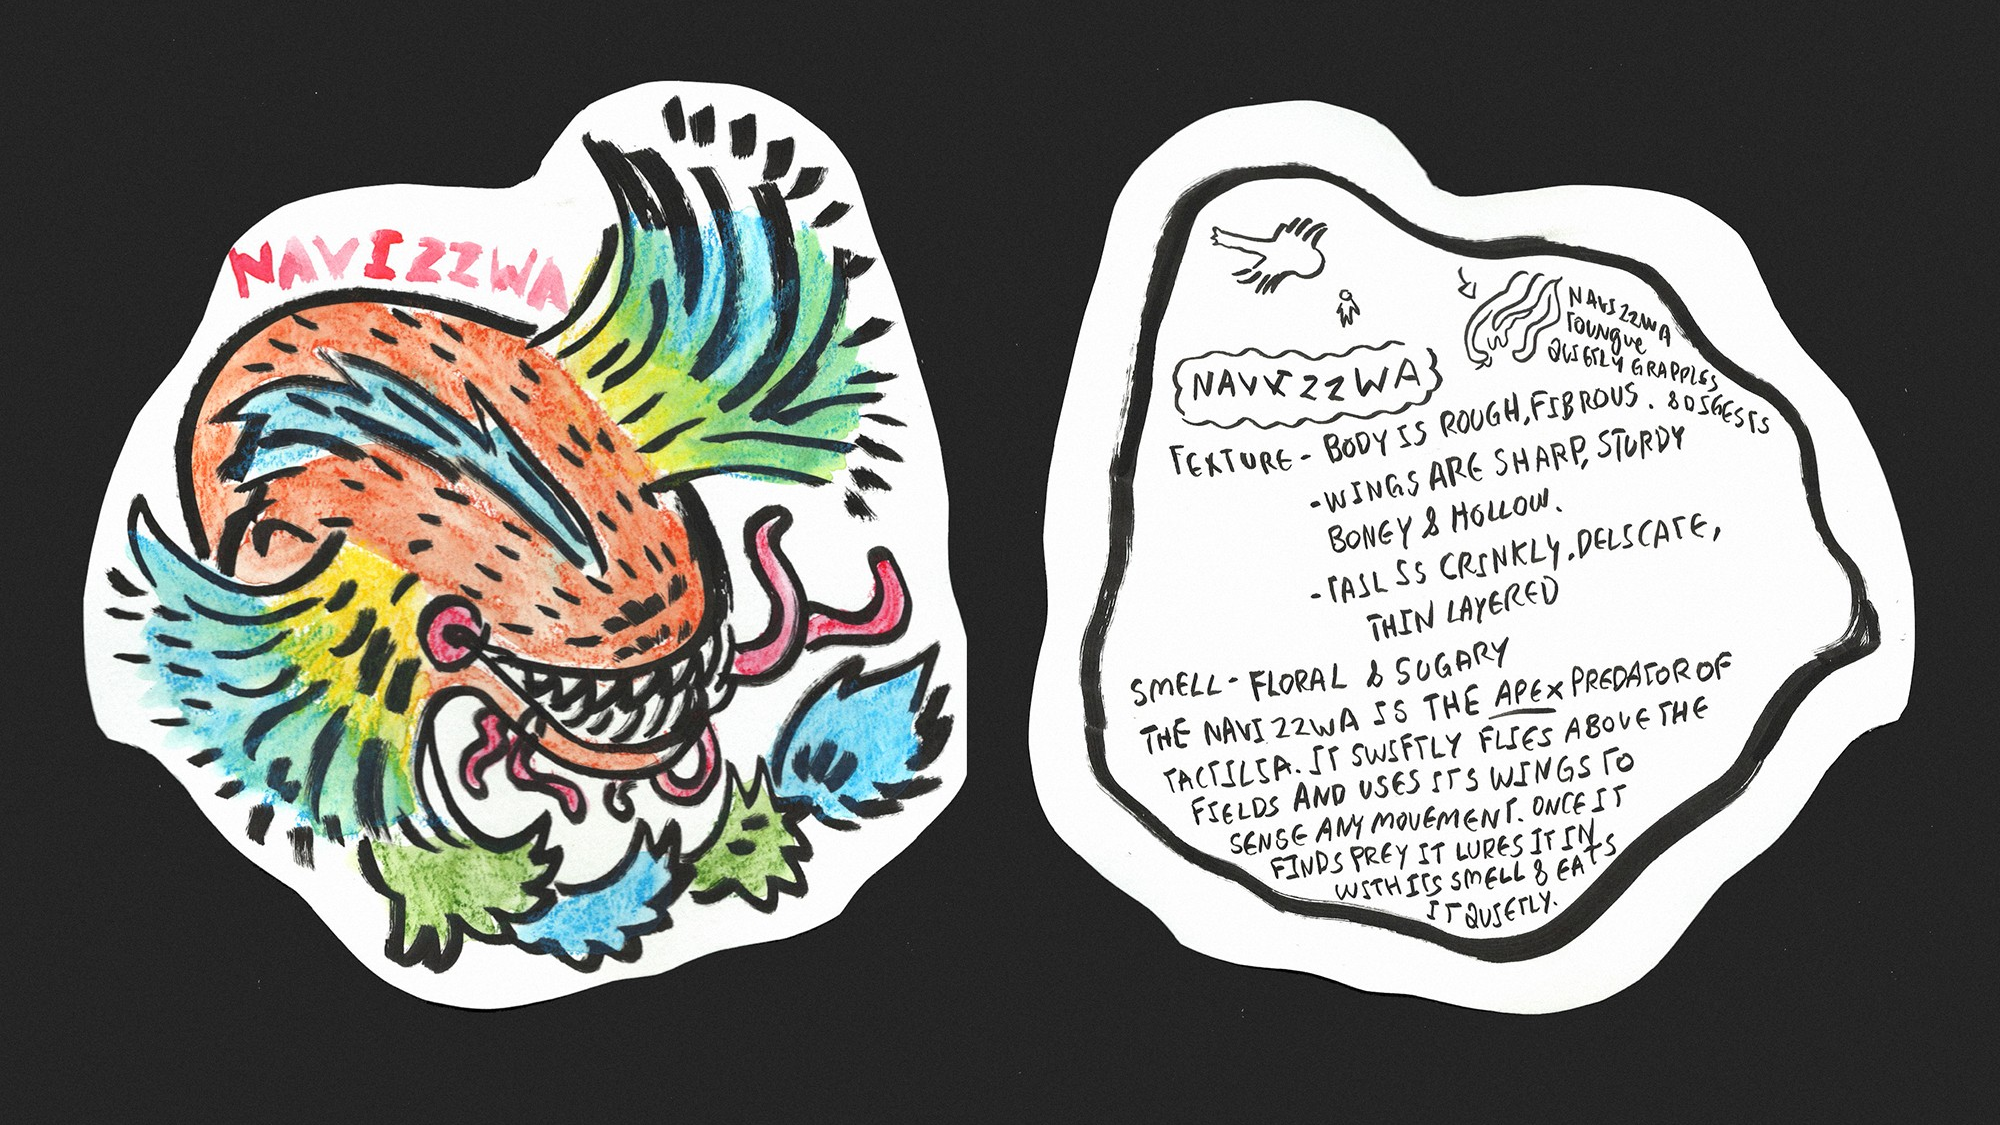 NAVIZZWA
NAVIZZWA
TOUNGUE
QUIETLY GRAPPLES
& DIGESTS
NAVIZZWA
TEXTURE - BODY IS ROUGH, FIBROUS.
- WINGS ARE SHARP, STURDY
BONEY & HOLLOW.
- TAIL IS CRINKLY. DELICATE,
THIN LAYERED
SMELL - FLORAL & SUGARY
THE NAVIZZWA IS THE APEX PREDATOR OF
TACTILIA. IT SWIFTLY FLIES ABOVE THE
FIELDS AND USES ITS WINGS TO
SENSE ANY MOVEMENT. ONCE IT
FINDS PREY IT LURES IT IN
WITH ITS SMELL & EATS
IT QUIETLY.